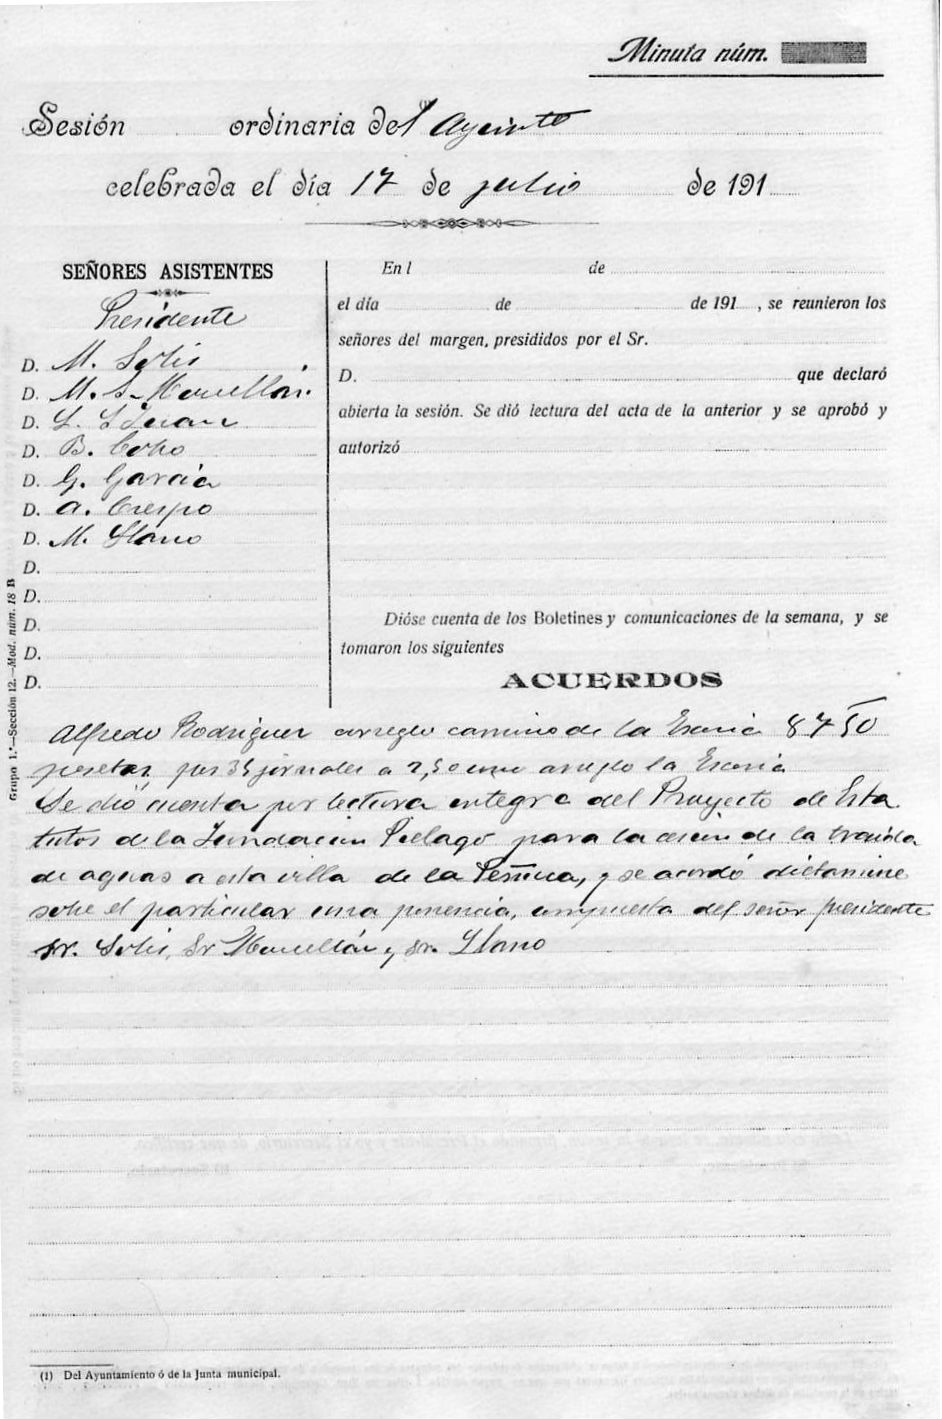 Minuta núm.
Sesión ordinaria del Ayunto
celebrada el día 17 de julio de 191
SEÑORES ASISTENTES
Presidente
D. M. Solis
D. M. S.
D. L.
D. B. Cobo
D. G. García
D. A. Crespo
D. M. Llano
D.
D.
D.
D.
D.
En l de
el día de de 191 , se reunieron los
señores del margen, presididos por el Sr.
D. que declaró
abierta la sesión. Se dió lectura del acta de la anterior y se aprobó y
autorizó
Dióse cuenta de los Boletines y comunicaciones de la semana, y se
tomaron los siguientes
ACUERDOS
Alfredo Rodriguez arreglo camino de la 87 50
pesetas por 35 jornales a 2,50 arreglo la
Se dió cuenta por lectura integra del Proyecto de Esta
tutos de la Fundacion Pielago para la de la traida
de aguas a esta villa de la y se acordó dictamine
sobre el particular una ponencia, compuesta del señor presidente
sr. Solis, Sr y sr. Llano
Grupo 1.º—Sección 12.—Mod. núm. 18 B
(1) Del Ayuntamiento ó de la Junta municipal.